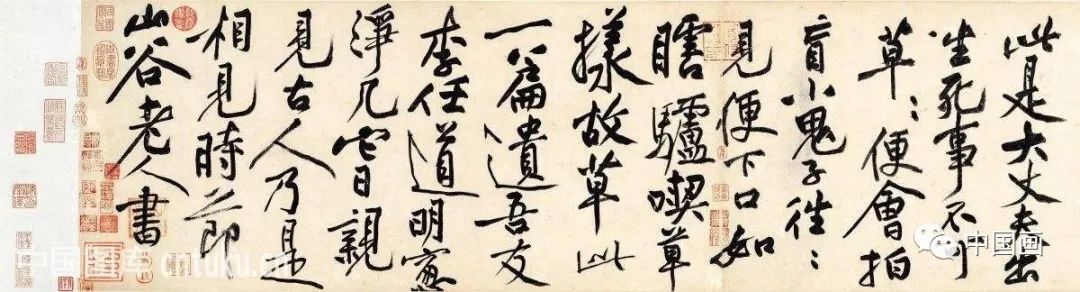 此是大丈夫出
生死事不可
草〻便會拍
盲小鬼子往〻
見便下口如
瞎驢喫草
樣故草此
一篇遺吾友
李任道明窓
淨几它日親
見古人乃是
相見時節
山谷老人書
中国画
中国图库 cntuku.cn